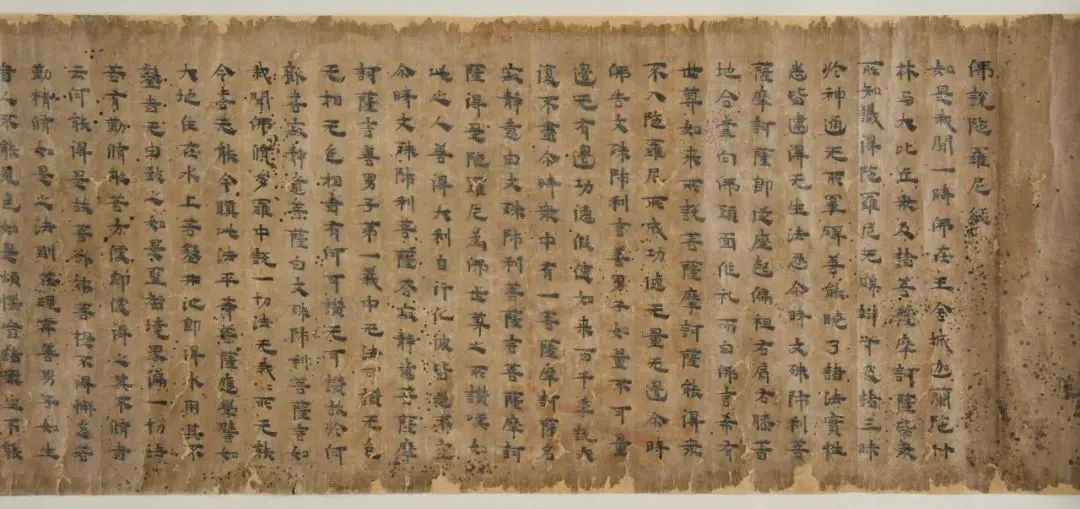 佛說陁羅尼經
如是我聞一時佛在王舍城迦蘭陁竹
林与大比丘衆及諸菩薩摩訶薩皆衆
所知識得陁羅尼无碍辯才及諸三昧
於神通无所罣碍善能曉了諸法實性
悉皆逮得无生法忍尒時文殊師利菩
薩摩訶薩即從座起偏袒右肩右膝着
地合掌向佛頭面作礼而白佛言希有
世尊如来所說菩薩摩訶薩能得衆
不入陁羅尼所成功德无量无邊尒時
佛告文殊師利言善男子如量不可量
邊无有邊功德假使如来百千年說
復不盡尒時衆中有一菩薩摩訶薩名
寂静意白文殊師利菩薩言菩薩摩訶
薩得是陁羅尼為佛世尊之所讃嘆如
此之人善得大利自行化彼皆悉滿足
尒時文殊師利菩薩荅寂静意菩薩摩
訶薩言善男子第一義中无法可讃无色
无相无色相者有何可讃无可讃故於何
歡喜寂静意菩薩白文殊師利菩薩言如
我聞佛脩多羅中說一切法无我所无能
令喜无能令瞋此法平等菩薩應學譬如
大地住在水上若鑿井池即得水用其不
鑿者无由致之如是聖智境界遍一切法
若有勤脩方便即便得之其不脩者
云何能得是故不得懈怠當
勤精脩如是之法則善男子如生
盲人不能見色如是煩惱盲諸衆生不能